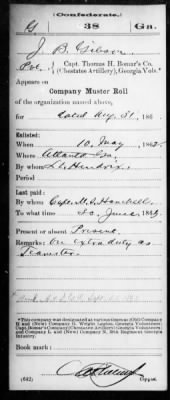 (Confederate.)
G 38 Ga.
J. B. Gibson
Pvt., Capt. Thomas H. Bomar's Co.
(Chestatee Artillery), Georgia Vols.*
Appears on
Company Muster Roll
of the organization named above,
for dated Aug. 31, 186
Enlisted:
When 10 May, 1862.
Where Atlanta Ga.
By whom Lt. Hendrix
Period
Last paid:
By whom Capt. M. S.
To what time 30 June, 186
Present or absent Present
Remarks: On extra duty as
Teamster.
*This company was designated at various times as (Old) Company
H and (New) Company D, Wright Legion, Georgia Volunteers;
Capt. Bomar's Company (Chestatee Artillery) Georgia Volunteers;
and Company L and (New) Company N, 38th Regiment Georgia
Infantry.
Book mark:
(642) Copyist.